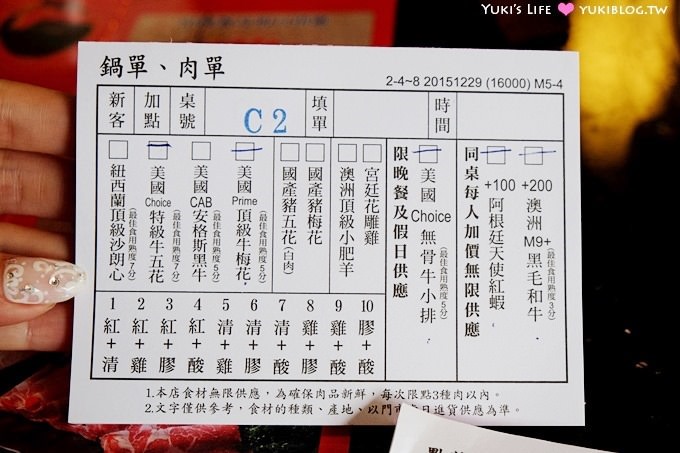 YUKI'S LIFE ❤ YUKIBLOG.TW
鍋單、肉單
2-4~8 20151229 (16000) M5-4
新客
加點
桌號
C2
填單
時間
紐西蘭頂級沙朗心(最佳食用熟度7分)
美國Choice特級牛五花(最佳食用熟度7分)
美國CAB安格斯黑牛(最佳食用熟度5分)
美國Prime頂級牛梅花(最佳食用熟度5分)
國產豬五花(白肉)
國產豬梅花
澳洲頂級小肥羊
宮廷花雕雞
限晚餐及假日供應
美國Choice無骨牛小排(最佳食用熟度5分)
同桌每人加價無限供應
+100阿根廷天使紅蝦
+200澳洲M9+黑毛和牛(最佳食用熟度3分)
1 2 3 4 5 6 7 8 9 10
紅 紅 紅 紅 清 清 清 雞 雞 膠
+ + + + + + + + + +
清 雞 膠 酸 雞 膠 酸 膠 酸 酸
1.本店食材無限供應，為確保肉品新鮮，每次限點3種肉以內。
2.文字僅供參考，食材的種類、產地、以門市當日進貨供應為準。